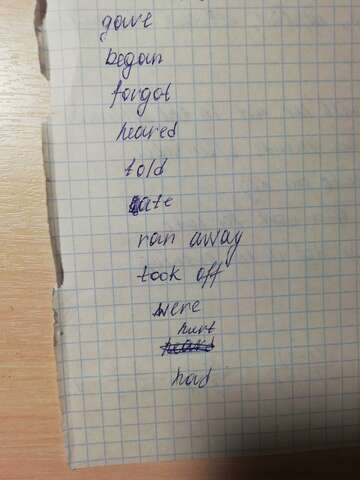 gave
began
forgot
heared
told
ate
ran away
took off
were
hurt
had